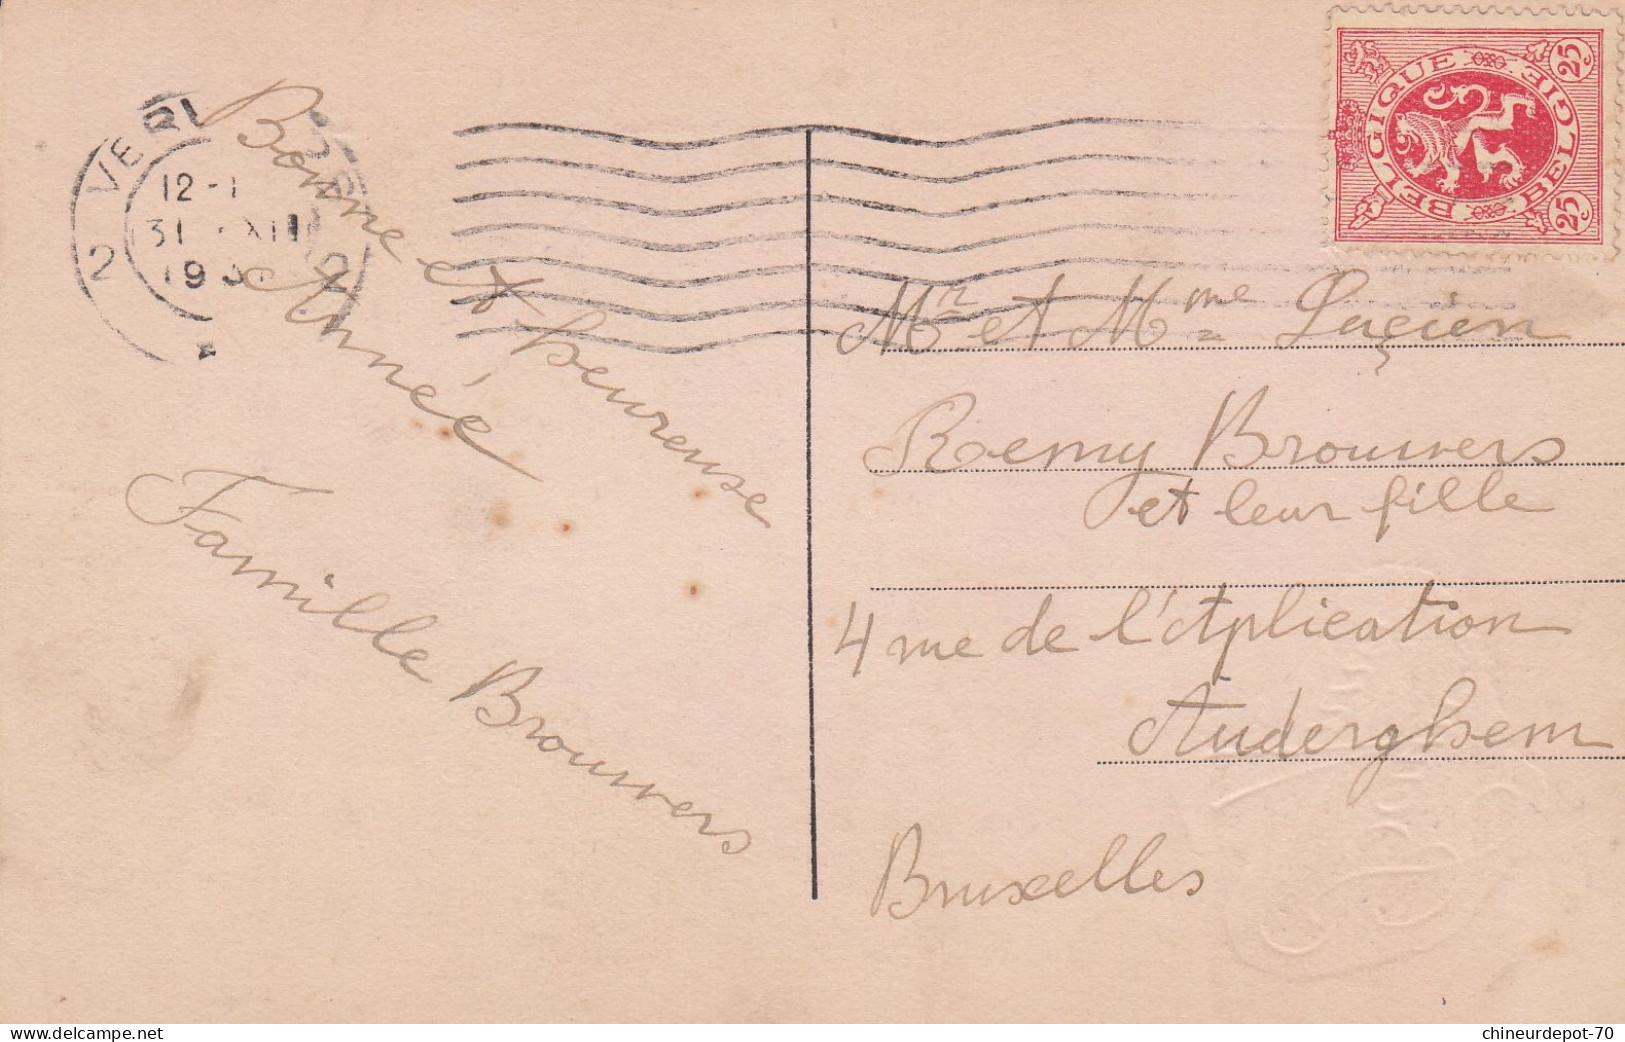 VERV
12-1
31 XII
2 2
BELGIQUE BELGIË
25 25
Bonne et heureuse
Année
Famille Brouwers
Mr et Mme Lucien
Remy Brouwers
et leur fille
4 rue de l'Aplication
Auderghem
Bruxelles
chineurdepot-70